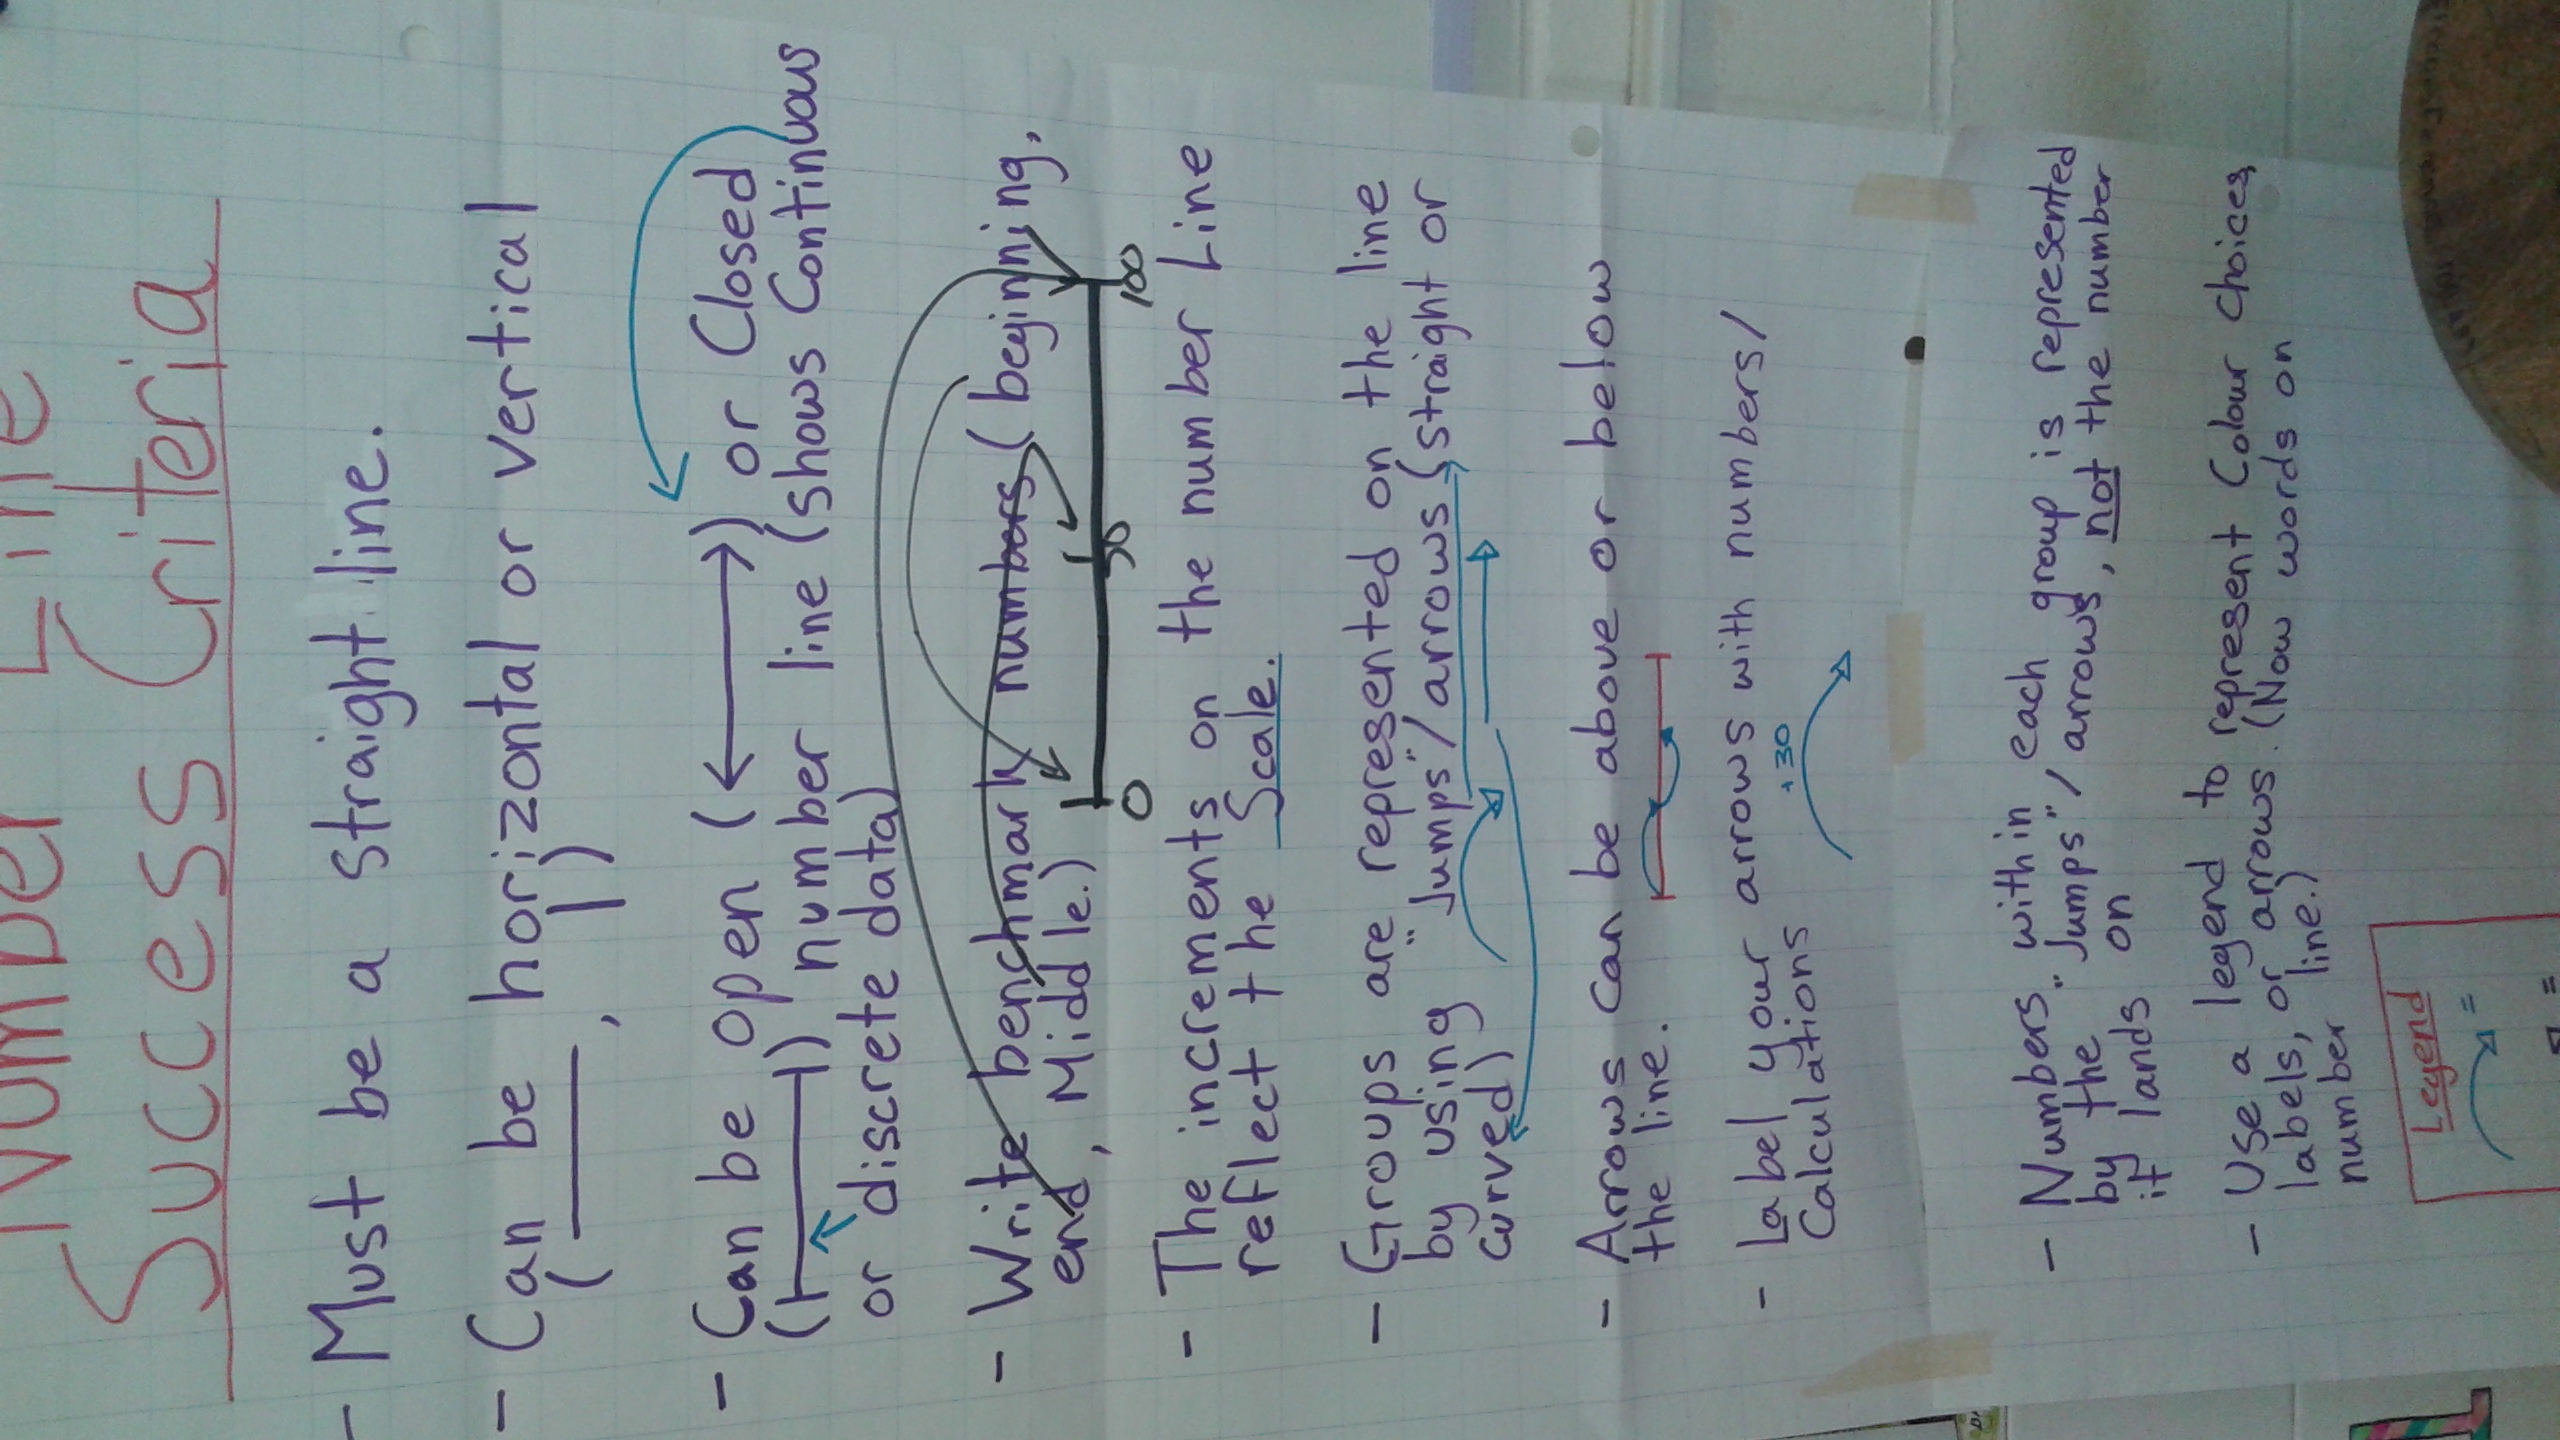 Number Line
Success Criteria
- Must be a straight line.
- Can be horizontal or vertical
( , )
- Can be open ( ) or Closed
( ) number line (shows Continuous
or discrete data)
- Write benchmark numbers (beginning,
end, Middle.)
0 50 100
- The increments on the number Line
reflect the Scale.
- Groups are represented on the line
by using "Jumps"/arrows (straight or
curved)
- Arrows can be above or below
the line.
- Label your arrows with numbers/
Calculations
+30
- Numbers within each group is represented
by the "Jumps"/arrows, not the number
it lands on
- Use a legend to represent Colour choices,
labels, or arrows. (Now words on
number line.)
Legend
=
=